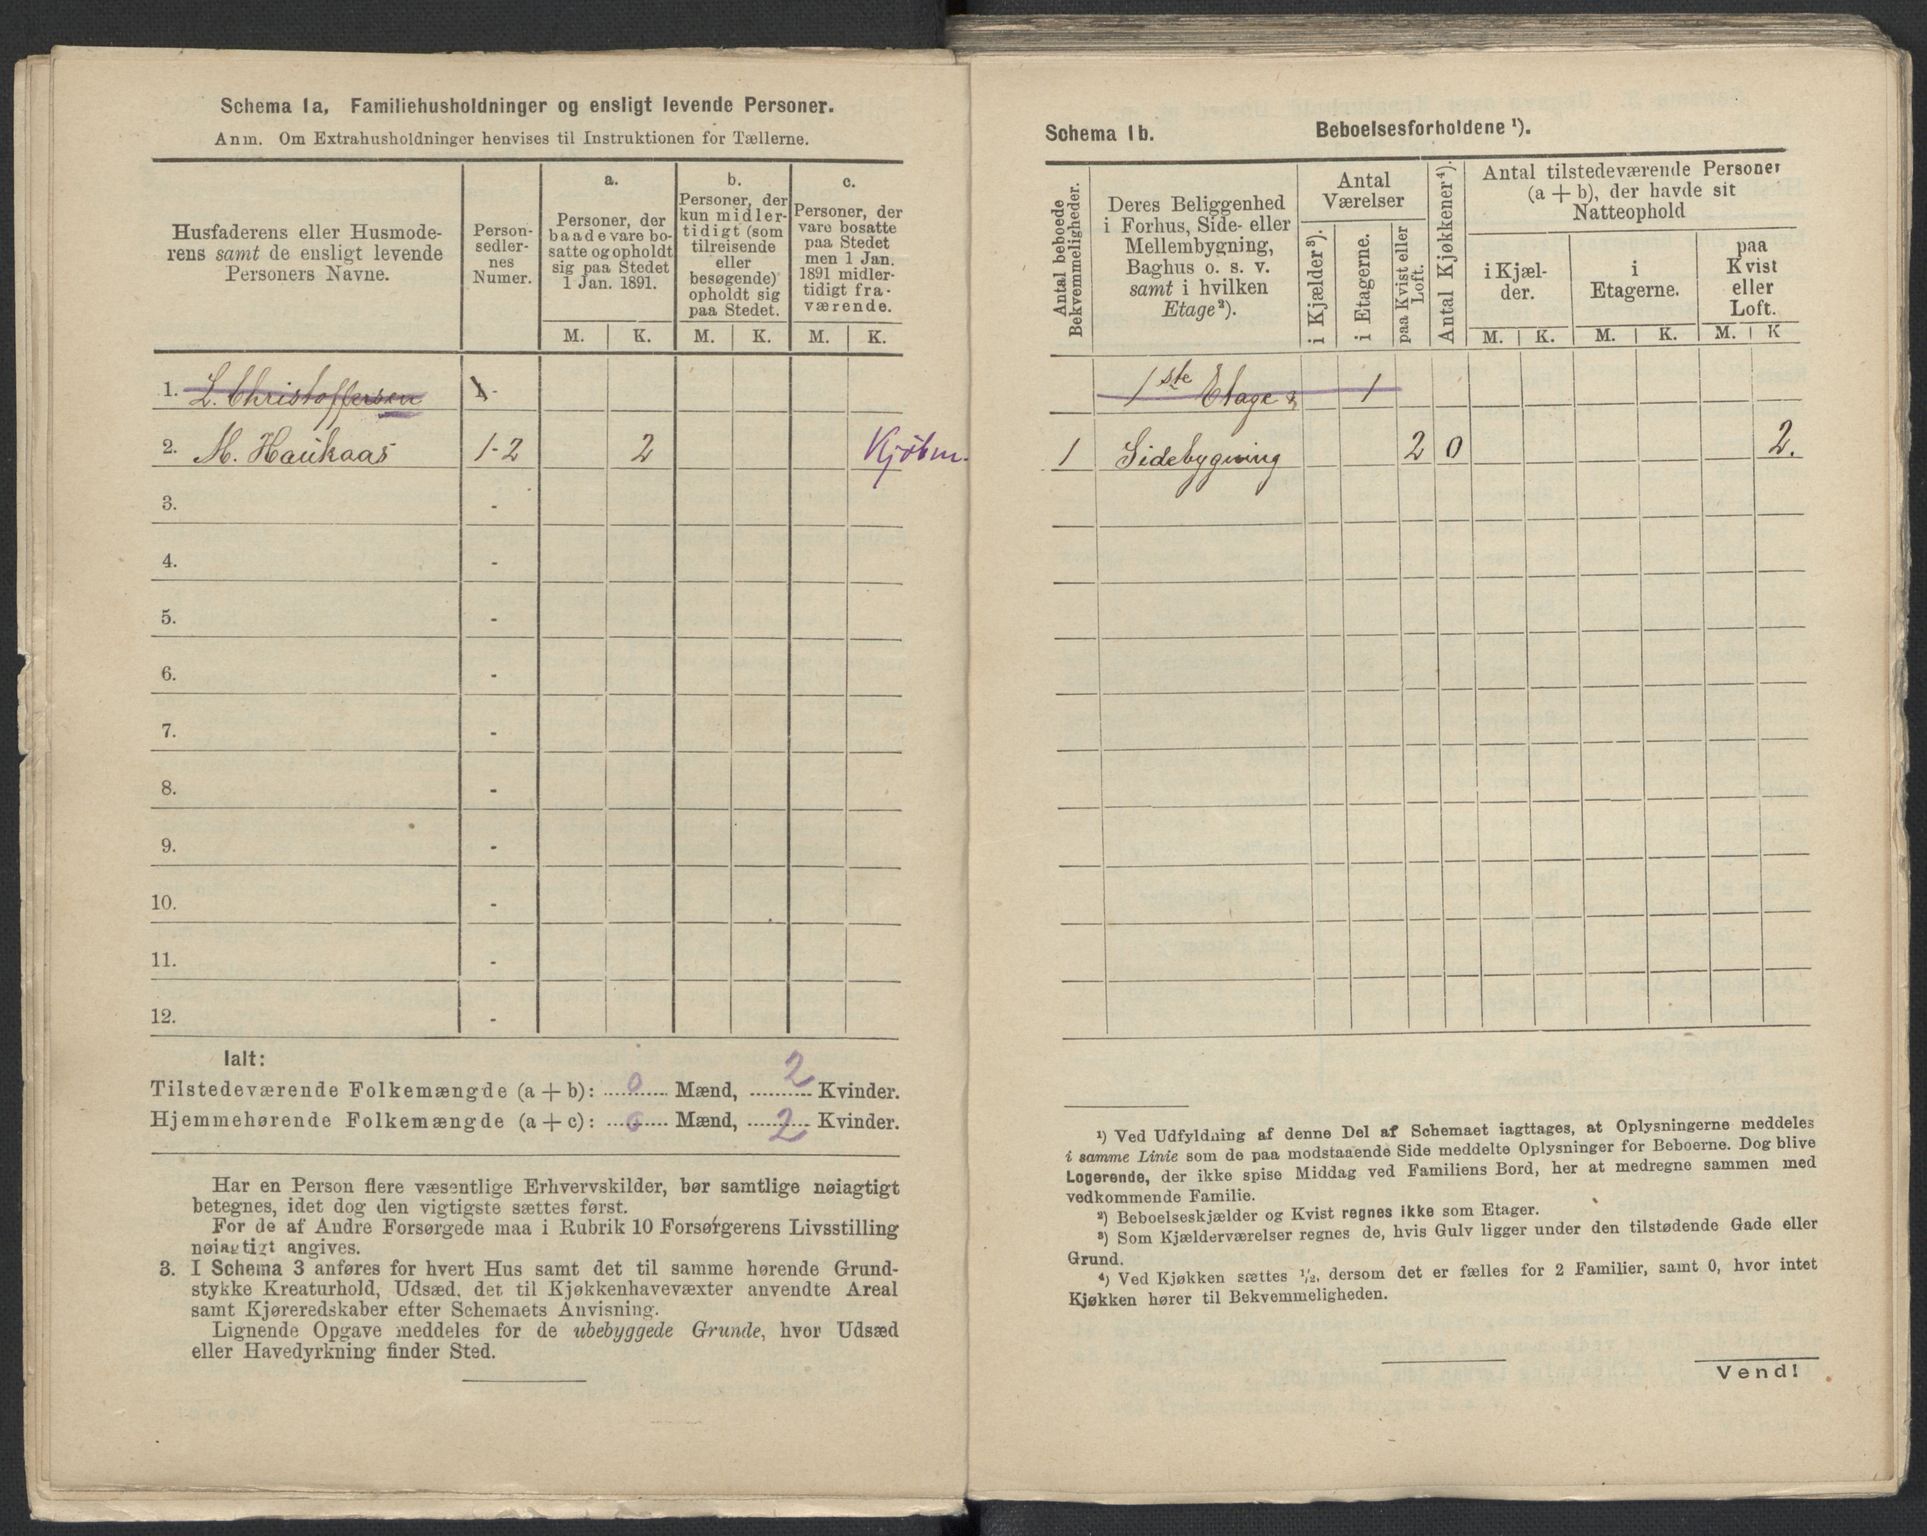 Schema 1a, Familiehusholdninger og ensligt levende Personer.
Anm. Om Extrahusholdninger henvises til Instruktionen for Tællerne.
Husfaderens eller Husmode-
rens samt de ensligt levende
Personers Navne.
Person-
sedler-
nes
Numer.
a.
Personer, der
baade vare bo-
satte og opholdt
sig paa Stedet
1 Jan. 1891.
b.
Personer, der
kun midler-
tidigt (som
tilreisende
eller
besøgende)
opholdt sig
paa Stedet.
c.
Personer, der
vare bosatte
paa Stedet
men 1 Jan.
1891 midler-
tidigt fra-
værende.
M. K. M. K. M. K.
1. L. Christoffersen 1 -
2. M. Haukaas 1-2 2 Kjøbm.
3. -
4. -
5. -
6. -
7. -
8. -
9. -
10. -
11. -
12. -
Ialt:
Tilstedeværende Folkemængde (a + b): 0 Mænd, 2 Kvinder.
Hjemmehørende Folkemængde (a + c): 0 Mænd, 2 Kvinder.
Har en Person flere væsentlige Erhvervskilder, bør samtlige nøiagtigt
betegnes, idet dog den vigtigste sættes først.
For de af Andre Forsørgede maa i Rubrik 10 Forsørgerens Livsstilling
nøiagtigt angives.
3. I Schema 3 anføres for hvert Hus samt det til samme hørende Grund-
stykke Kreaturhold, Udsæd, det til Kjøkkenhavevæxter anvendte Areal
samt Kjøreredskaber efter Schemaets Anvisning.
Lignende Opgave meddeles for de ubebyggede Grunde, hvor Udsæd
eller Havedyrkning finder Sted.
Schema 1b. Beboelsesforholdene ¹).
Antal beboede
Bekvemmeligheder.
Deres Beliggenhed
i Forhus, Side- eller
Mellembygning,
Baghus o. s. v.
samt i hvilken
Etage²).
Antal
Værelser
i Kjælder³).
i Etagerne.
paa Kvist eller
Loft.
Antal Kjøkkener⁴).
Antal tilstedeværende Personer
(a + b), der havde sit
Natteophold
i Kjæl-
der.
i
Etagerne.
paa
Kvist
eller
Loft.
M. K. M. K. M. K
1ste Etage 1
1 Sidebygning 2 0 2.
¹) Ved Udfyldning af denne Del af Schemaet iagttages, at Oplysningerne meddeles
i samme Linie som de paa modstaaende Side meddelte Oplysninger for Beboerne. Dog blive
Logerende, der ikke spise Middag ved Familiens Bord, her at medregne sammen med
vedkommende Familie.
²) Beboelseskjælder og Kvist regnes ikke som Etager.
³) Som Kjælderværelser regnes de, hvis Gulv ligger under den tilstødende Gade eller
Grund.
⁴) Ved Kjøkken sættes ½, dersom det er fælles for 2 Familier, samt 0, hvor intet
Kjøkken hører til Bekvemmeligheden.
Vend!